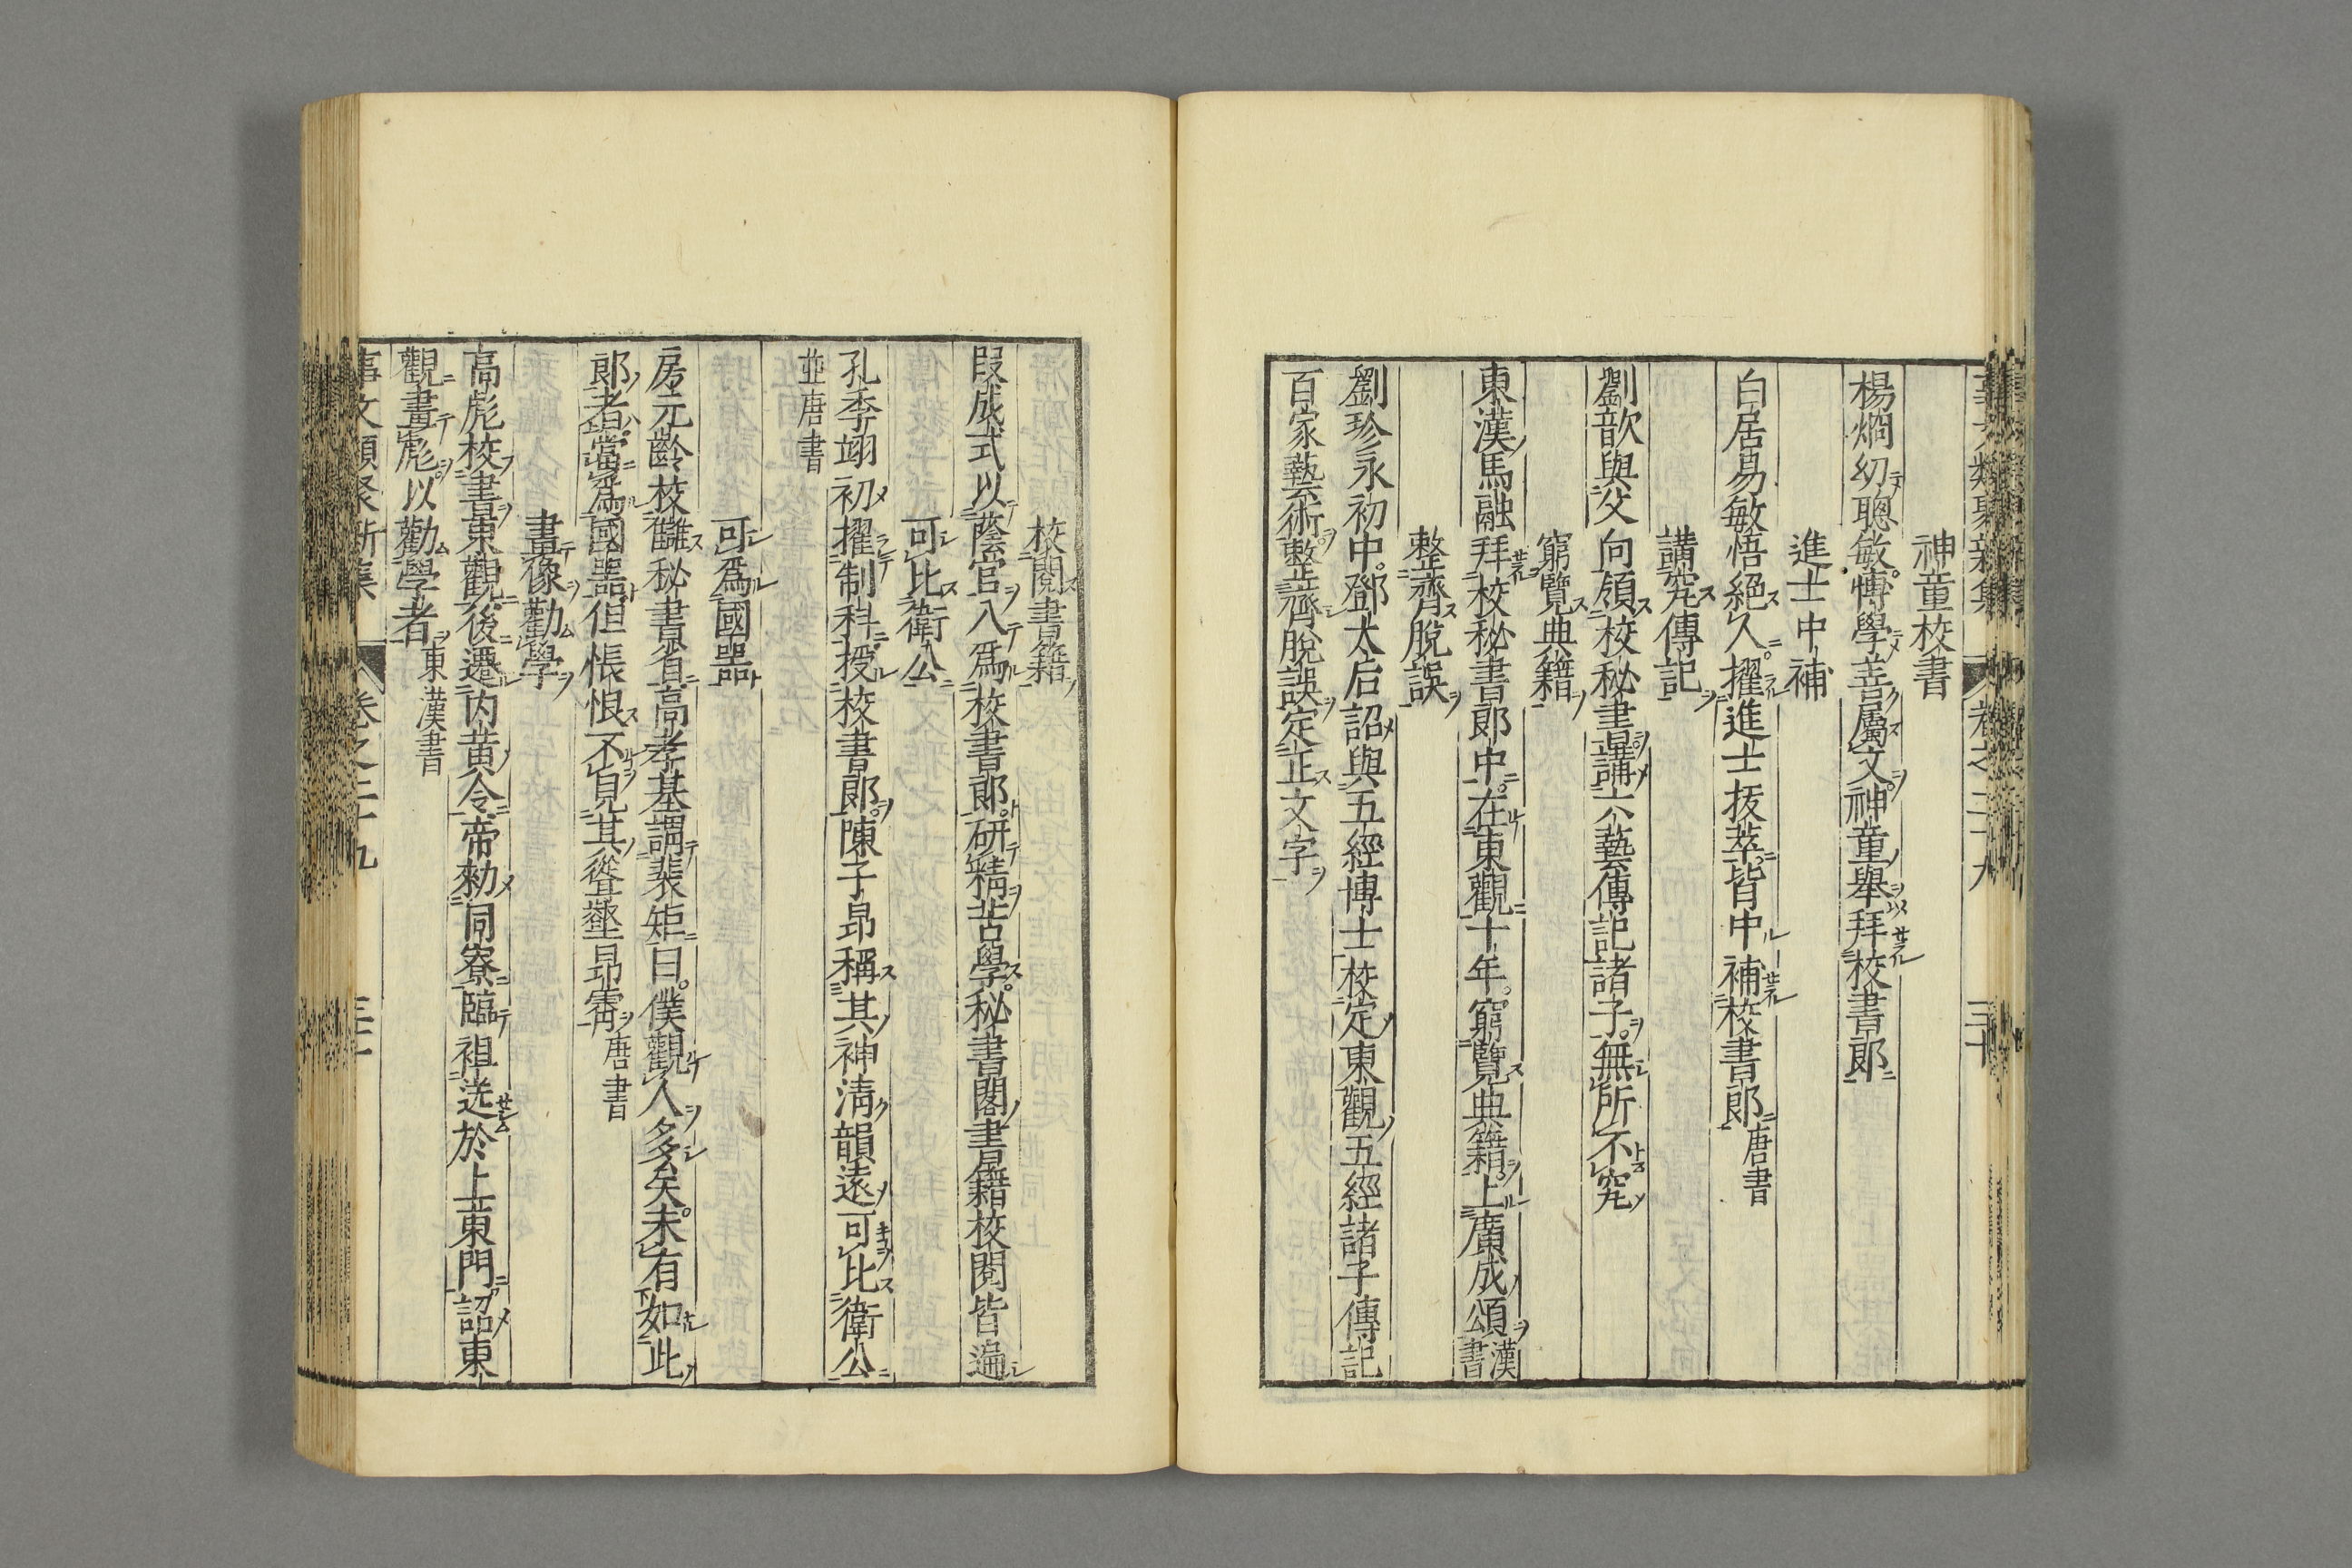 神童校書
楊烱幼聰敏博學善屬文神童舉拜校書郎
進士中補
白居易敏悟絕人擢進士抜萃皆中補校書郎唐書
講究傳記
劉歆與父向領校秘書講六藝傳記諸子無所不究
窮覽典籍
東漢馬融拜校秘書郎中在東觀十年窮覽典籍上廣成頌漢書
整齊脫誤
劉珍永初中鄧太后詔與五經博士校定東觀五經諸子傳記
百家藝術整齊脫誤定正文字
校閱書籍
段成式以蔭官入爲校書郎研精苦學秘書閣書籍校閱皆遍
可比衛公
孔季翊初擢制科授校書郎陳子昻稱其神淸韻遠可比衛公
並唐書
可爲國器
房元齡校讎秘書省高孝基謂裴矩曰僕觀人多矣未有如此
郎者當爲國器但悵恨不見其聳壑昻霄唐書
畫像勸學
高彪校書東觀後遷內黃令帝勑同寮臨祖送於上東門詔東
觀畫彪以勸學者東漢書
事文類聚新集 卷之二十九